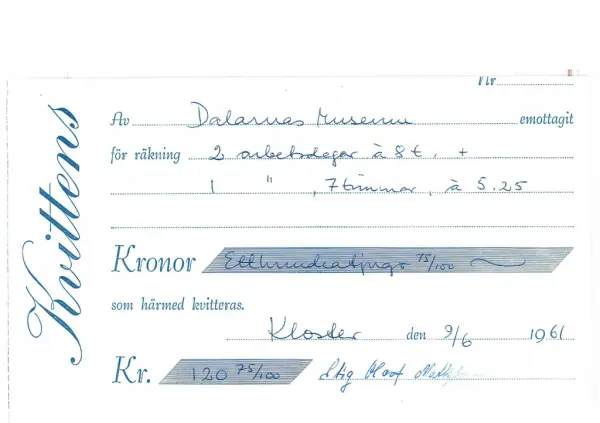 Kvittens
Nr
Av Dalarnas Museum emottagit
för räkning 2 arbetsdagar à 8 t. +
1 " , 7 timmar, à 5.25
Kronor Etthundratjugo 75/100
som härmed kvitteras.
Kloster den 9/6 1961
Kr. 120 75/100 Stig Olof